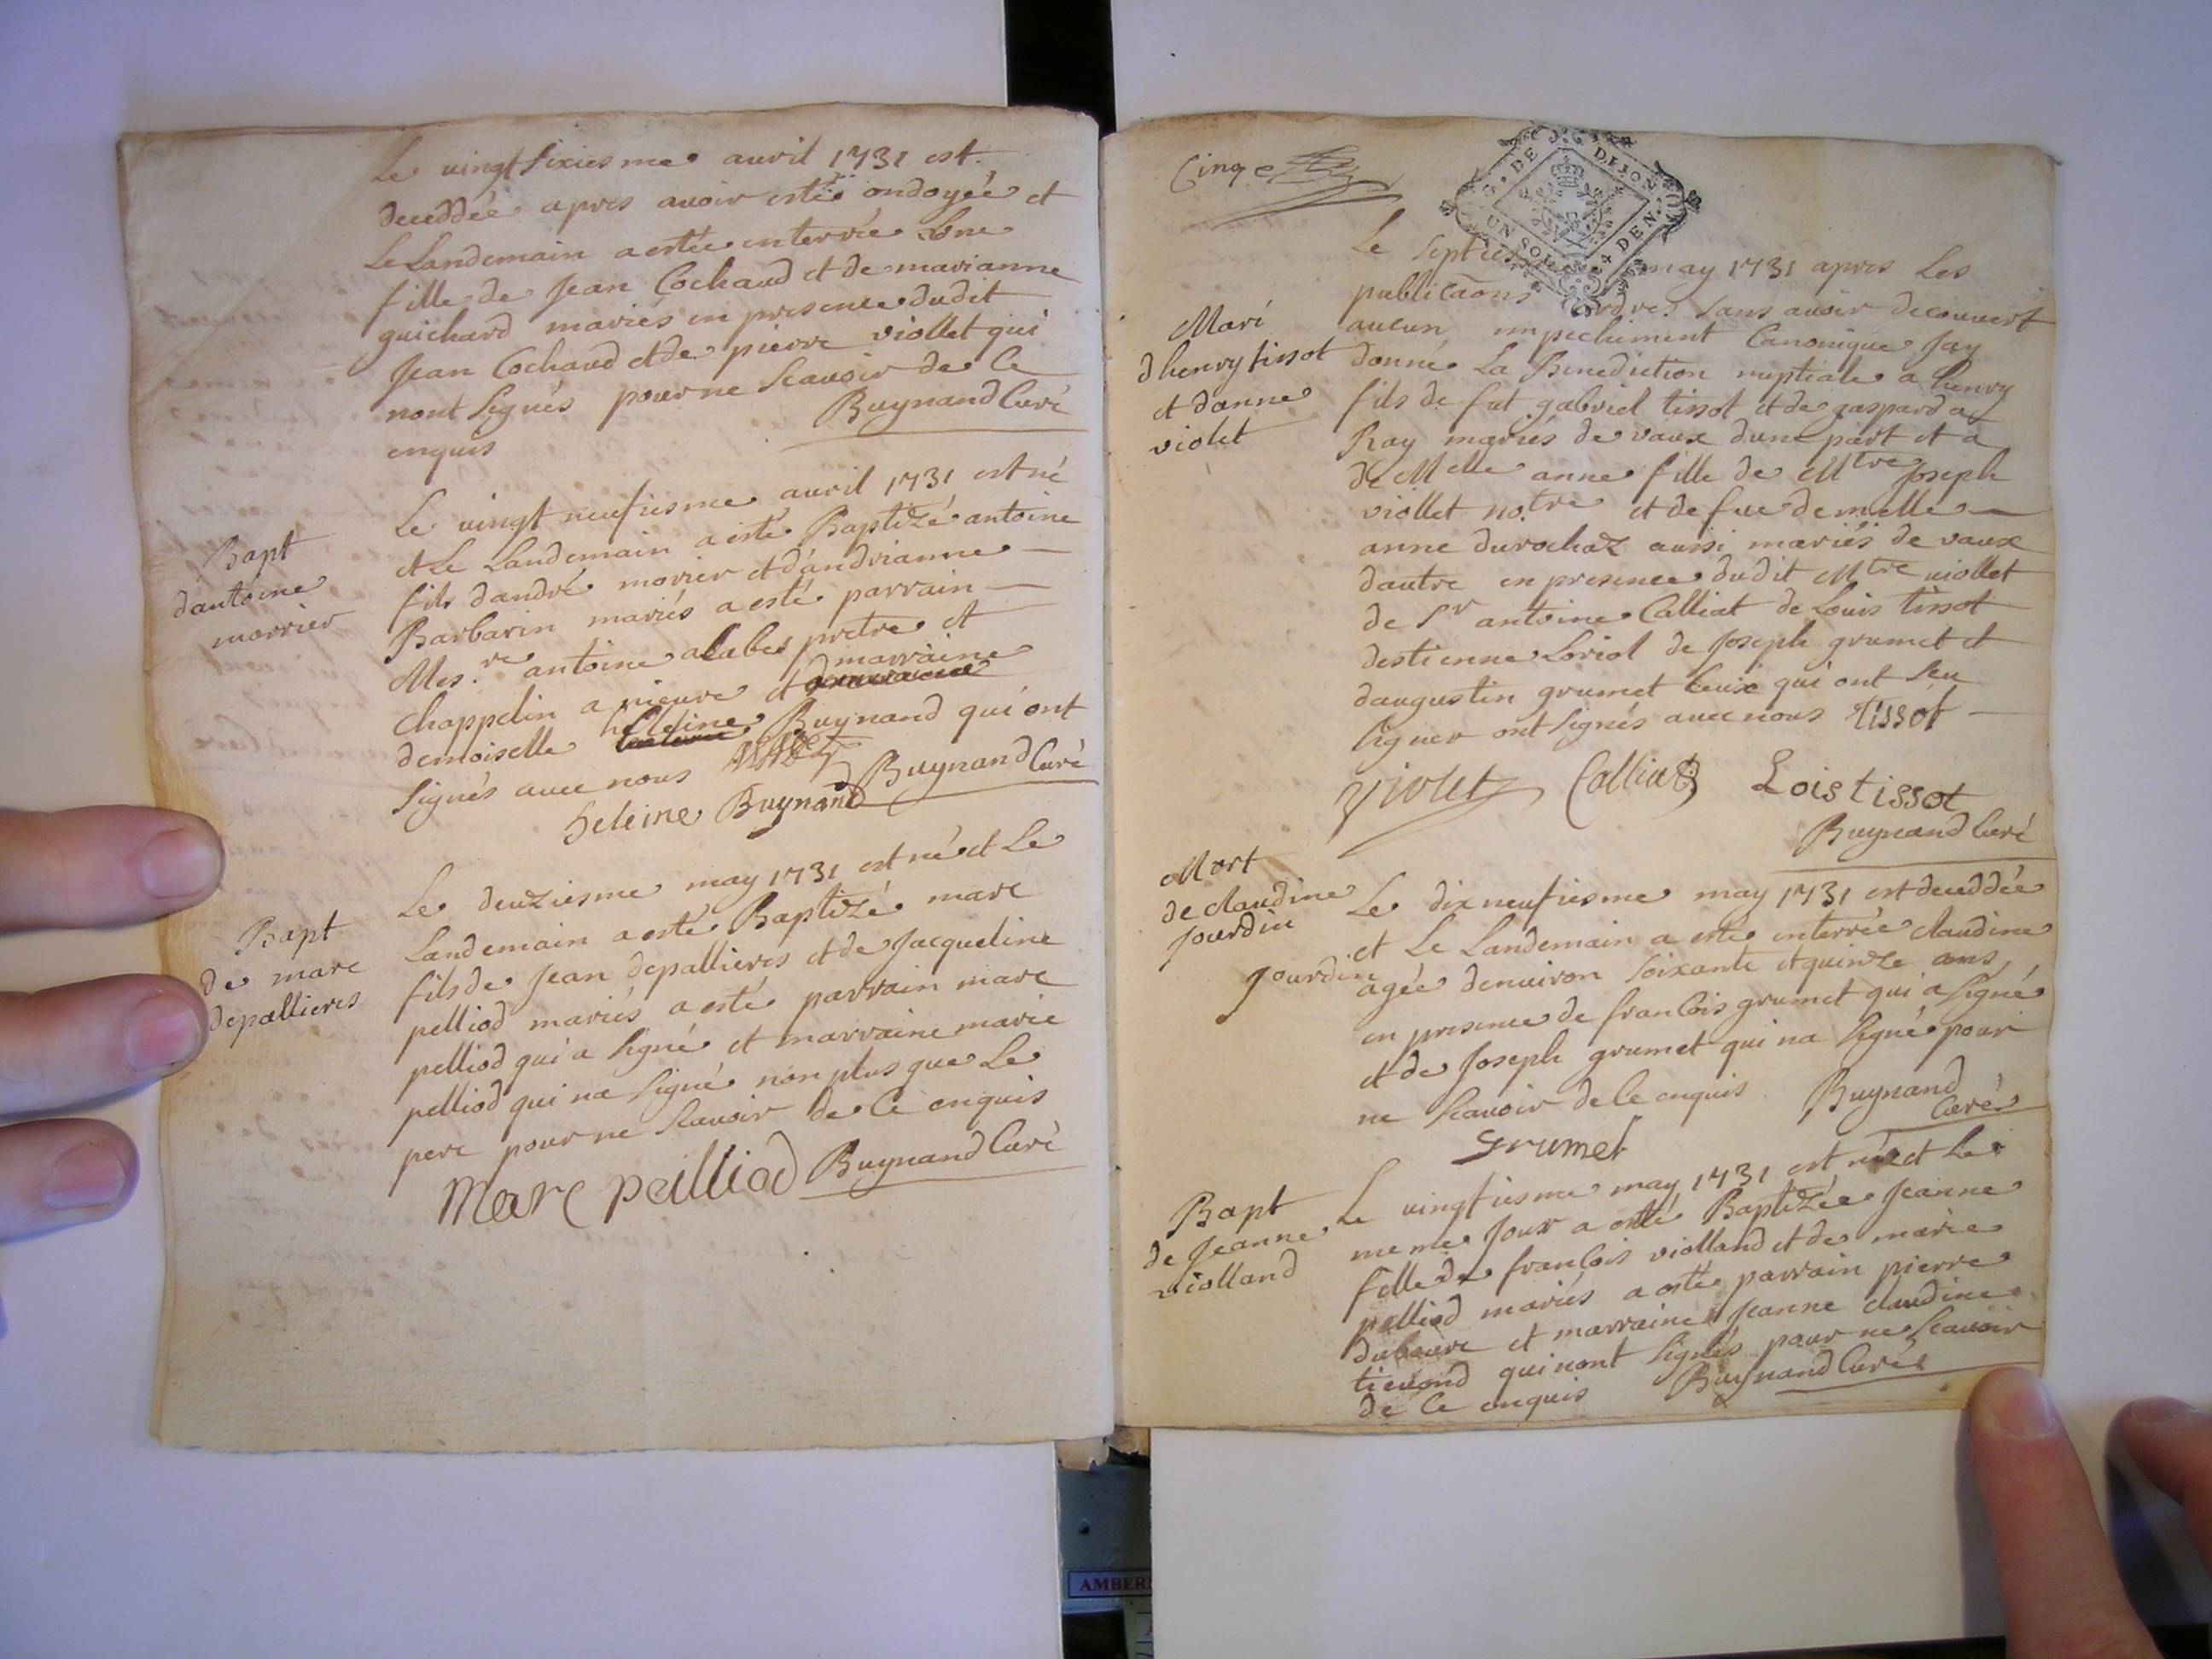 Le vingt sixiesme avril 1731 est
deceddée apres avoir estée ondoyée et
Le Landemain a estée enterrée Lune
fille de Jean Cochaud et de marianne
guichard mariés en presence dudit
Jean Cochaud et de pierre viollet qui
nont signés pour ne scavoir de ce
enquis Buynand Curé
Bapt
dantoine
morrier
Le vingt neufiesme avril 1731 est né
et Le Landemain a esté Baptizé antoine
fils dandré morier et dandrianne
Barbarin mariés a esté parrain
Mes.re antoine alabes pretre et
Chappelin a nieure et marraine
demoiselle heleine Buynand qui ont
signés avec nous
heleine Buynand Buynand Curé
Bapt
de marc
depallieres
Le deuziesme may 1731 est né et Le
Landemain a esté Baptizé marc
fils de Jean depallieres et de Jacqueline
pelliod mariés a esté parrain marc
pelliod qui a signé et marraine marie
pelliod qui na signé non plus que Le
pere pour ne scavoir de ce enquis
Marc peilliod Buynand Curé
Cinq
G. DE DIJON
UN SOL 4 DEN.
Mari
dhenry tissot
et danne
violet
Le septiesme may 1731 apres Les
publicaons sans avoir decouvert
aucun impechiment Canonique Jay
donné La Benediction nuptiale a henry
fils de fut gabriel tissot et de gasparda
Ray mariés de vaux dune part et a
de Melle anne fille de Mtre Joseph
viollet no.tre et de fue demelle
anne durochaz aussi mariés de vaux
dautre en presence dudit Mtre viollet
de Sr antoine Calliat de Louis tissot
destienne Loriol de Joseph grumet et
daugustin grumet Ceux qui ont sçu
signer ont signés avec nous tissot
violet Calliat Lois tissot
Buynand Curé
Mort
de claudine
Jourdin
Le dixneufiesme may 1731 est deceddée
et Le Landemain a estée enterrée claudine
Jourdin agée denviron soixante et quinze ans
en presence de francois grumet qui a signé
et de Joseph grumet qui na signé pour
ne scavoir de ce enquis Buynand
Curé
grumet
Bapt
de Jeanne
violland
Le vingtiesme may 1731 est née et Le
meme Jour a esté Baptizée Jeanne
fille de francois violland et de marie
pelliod mariés a estée parrain pierre
dubeure et marraine Jeanne claudine
tievend qui nont signés pour ne scavoir
de Ce enquis Buynand Curé
AMBER